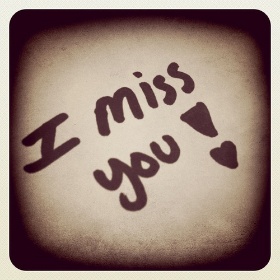 I miss
you!